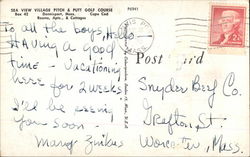 SEA VIEW VILLAGE PITCH & PUTT GOLF COURSE
Box 42 Dennisport, Mass. Cape Cod
Rooms, Apts., & Cottages
P62941
To all the boys, Hello
HAVing a good
time - Vacationing
here for 2 weeks
I'll be seeing
you soon
Post Card
Snyder Bev Co.
Grafton St.
Worcester, Mass.